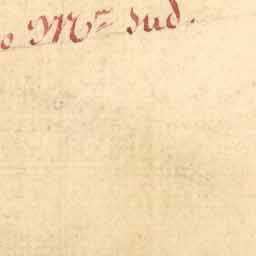 o Mr Sud.